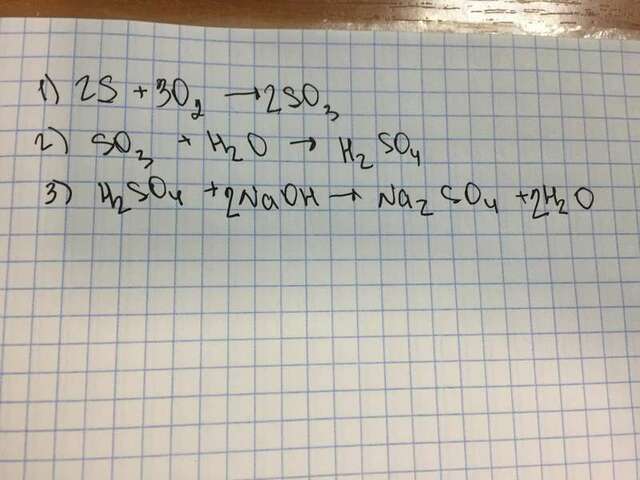 1) 2S + 3O₂ → 2SO₃
2) SO₃ + H₂O → H₂SO₄
3) H₂SO₄ + 2NaOH → Na₂SO₄ + 2H₂O